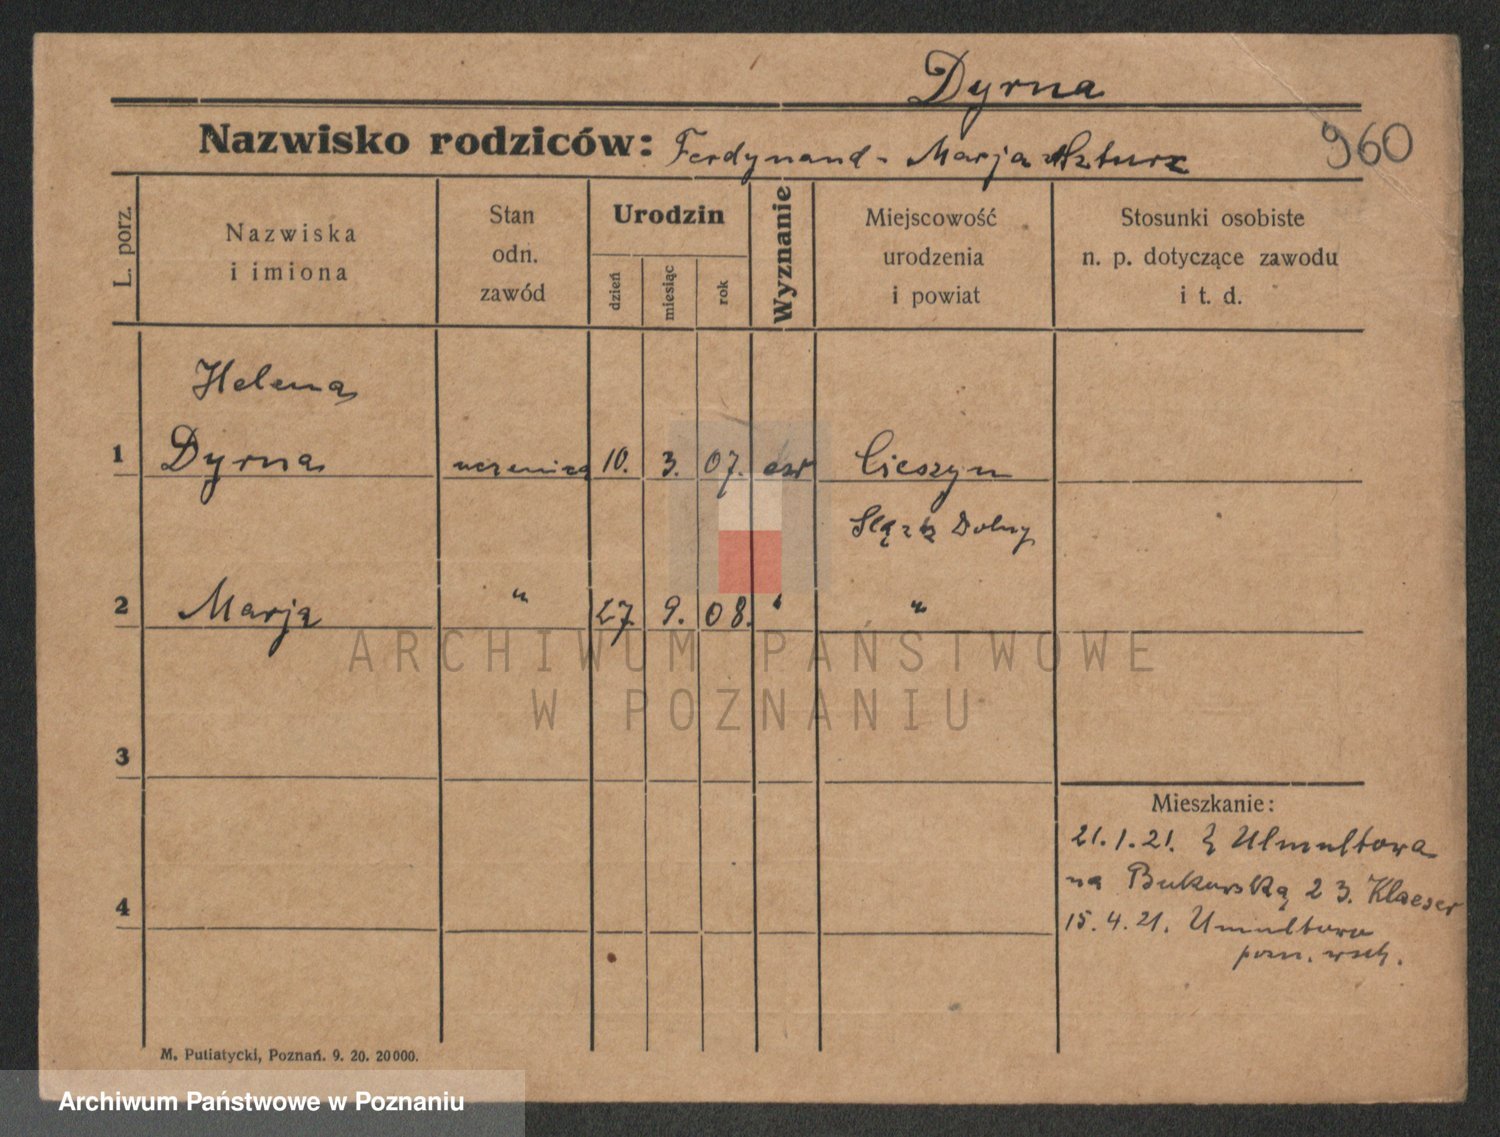 Dyrna
Nazwisko rodziców: Ferdynand - Marja
960
L. porz.
Nazwiska
i imiona
Stan
odn.
zawód
Urodzin
dzień
miesiąc
rok
Wyznanie
Miejscowość
urodzenia
i powiat
Stosunki osobiste
n. p. dotyczące zawodu
i t. d.
Helena
1 Dyrna uczenica 10. 3. 07. Cieszyn
Śląsk Dolny
2 Marja " 27. 9. 08. "
3
4
Mieszkanie:
21.1.21. Z Ulmultowa
na Bukowską 2 3. Klaeser
15.4.21. Umultowo
pozn. wsch.
M. Putiatycki, Poznań. 9. 20. 20000.
ARCHIWUM PAŃSTWOWE
W POZNANIU
Archiwum Państwowe w Poznaniu